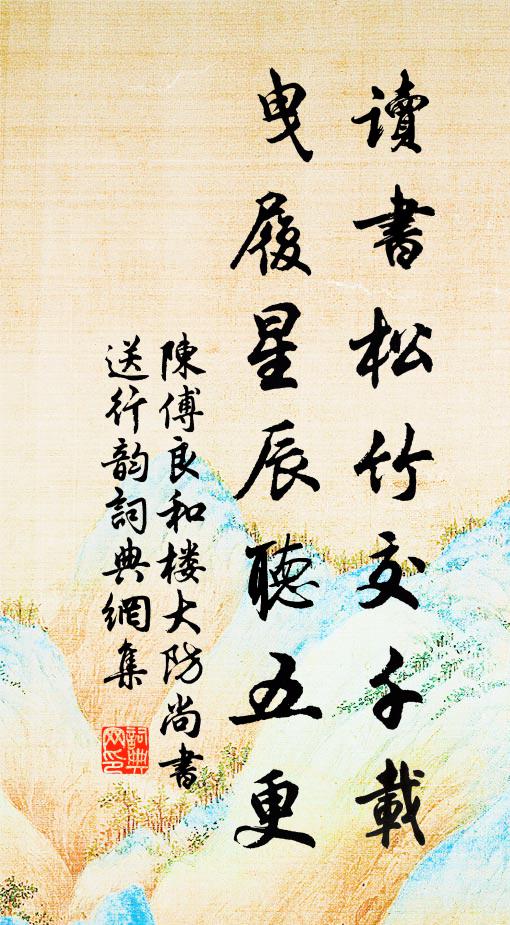 讀書松竹交千載
曳履星辰聽五更
陳傅良和楼大防尚書
送行韵詞典網集
詞典網印